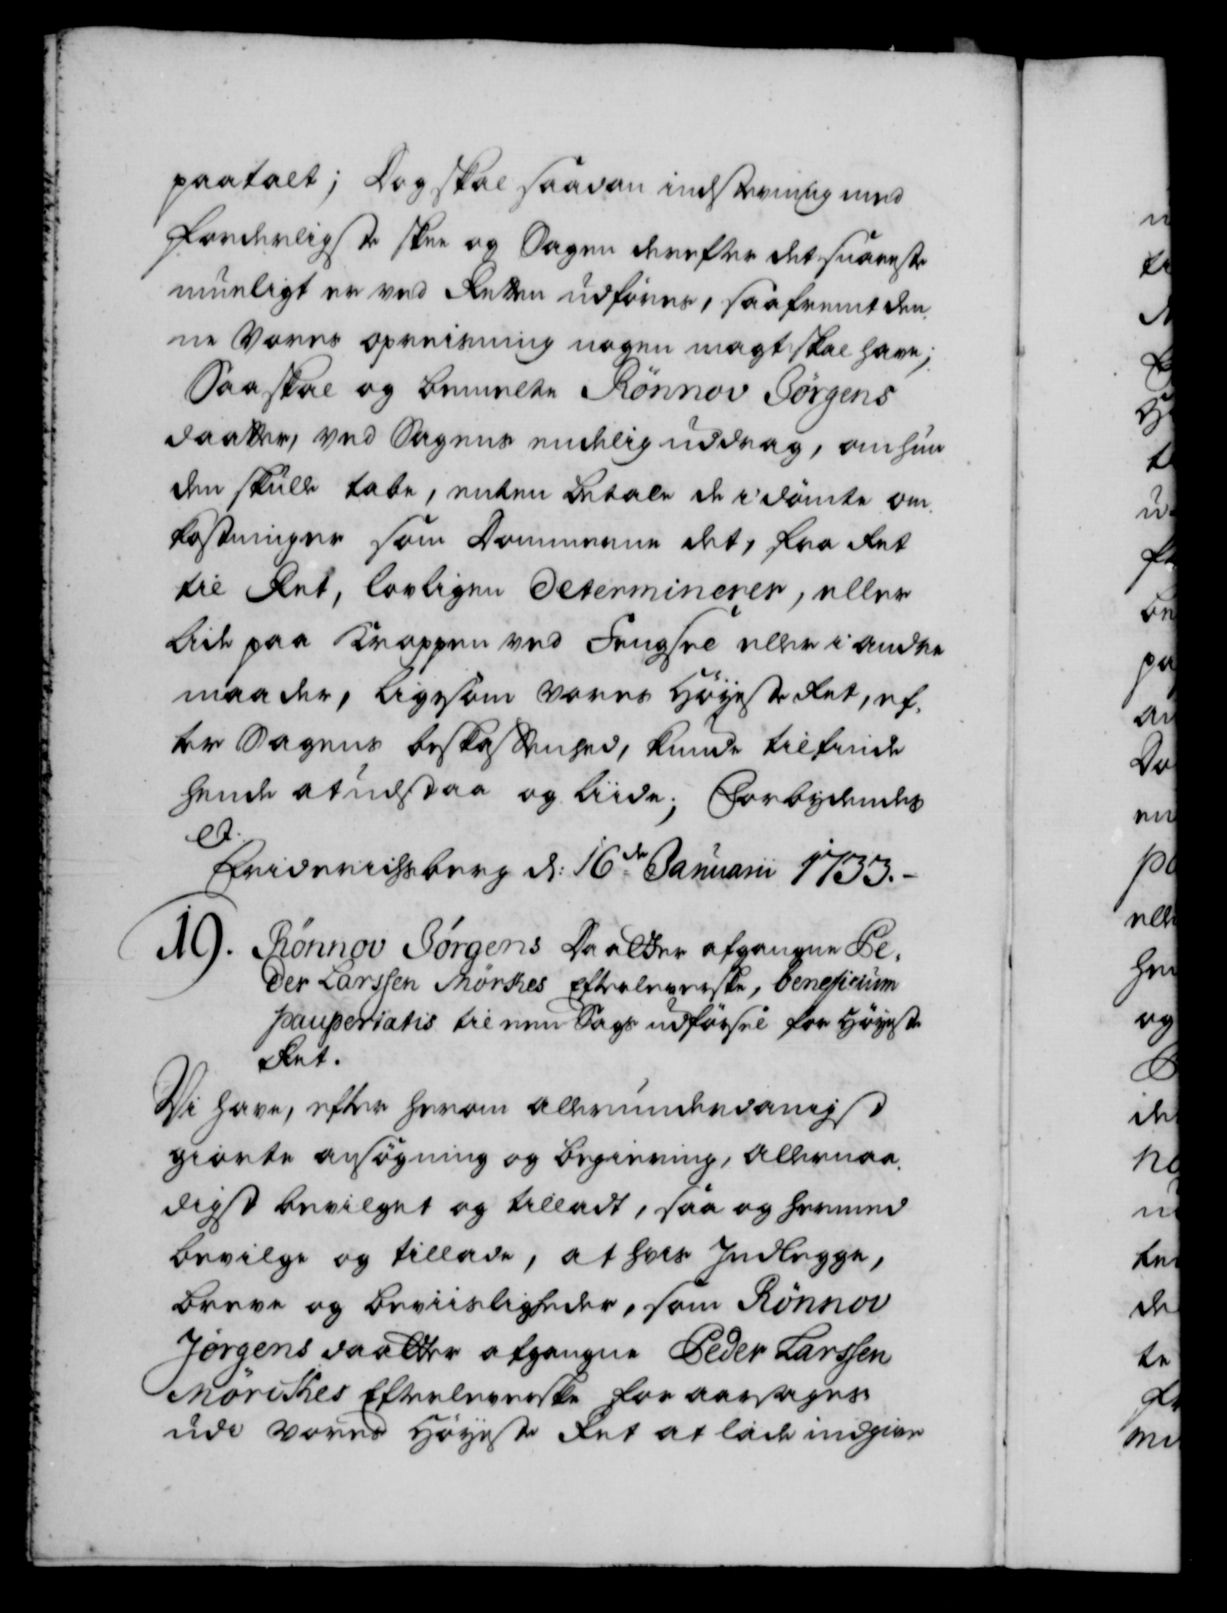 paatalt; Dog skal saadan indstevning med
forderligste skee og Sagen derefter det snareste
mueligt er ved Retten udføres, saafremt den,,
ne Vores opreisning nogen magt skal have;
Saa skal og bemelte Rönnov Jörgens
daatter, ved Sagens endelig uddrag, om hun
den skulle tabe, enten betale de i dömte om,,
kostninger som Dommerne det, fra Ret
til Ret, lovligen determinerer, eller
lide paa Kroppen ved Fengsel eller i andre
maader, ligesom vores Höyeste Ret, ef,,
ter Sagens beskaffenhed, kunde tilfinde
hende at udstaa og liide; Forbydendes
et.
Friderichsberg d: 16de Januarii 1733.-
19. Rönnov Jörgens Daatter afgangne Pe,,
der Larssen Mörkes Efterleverske, beneficium
paupertatis til een Sags udförsel for Höyeste
Ret.
Vi have, efter herom allerunderdanigst
giorte ansögning og begiering, allernaa,,
digst bevilget og tilladt, saa og hermed
bevilge og tillade, at hvis Indlegge,
breve og beviisligheder, som Rönnov
Jörgens daatter afgangne Peder Larssen
Mörckes Efterleverske foraarsages
udi vores Höyeste Ret at lade indgive